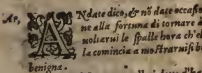 Ar, ANdate dico, & nō date occasio
ne alla fortuna di tornare a
uoltarui le spalle hora ch'el
la comincia a mostraruisi b
benigna.